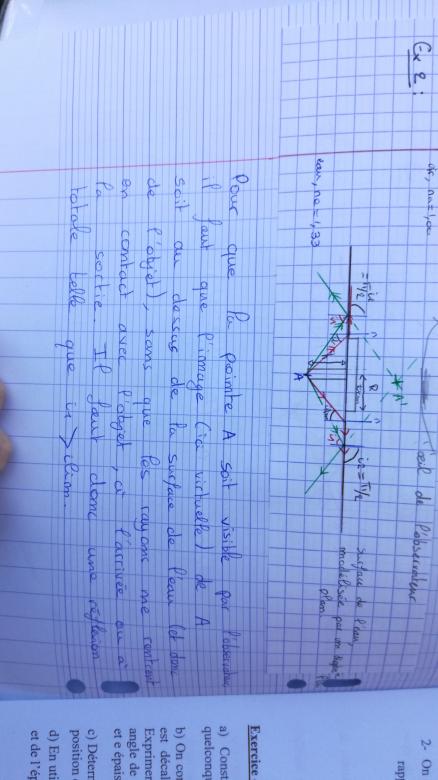 Ex 2 :
œil de l'observateur
A'
surface de l'eau
modélisée par un
plan
i2 = π/2
R
eau, ne = 1,33
A
Pour que la pointe A soit visible par l'observateur
il faut que l'image (ici virtuelle) de A
soit au dessus de la surface de l'eau (et donc
de l'objet), sans que les rayons ne rentrent
en contact avec l'objet, à l'arrivée ou à
la sortie. Il faut donc une réflexion
totale telle que i1 > ilim.
2- On
rapp
Exercice
a) Const
quelconq
b) On con
est décal
Exprimer
angle de
et e épais
c) Déterr
position
d) En uti
et de l'ép